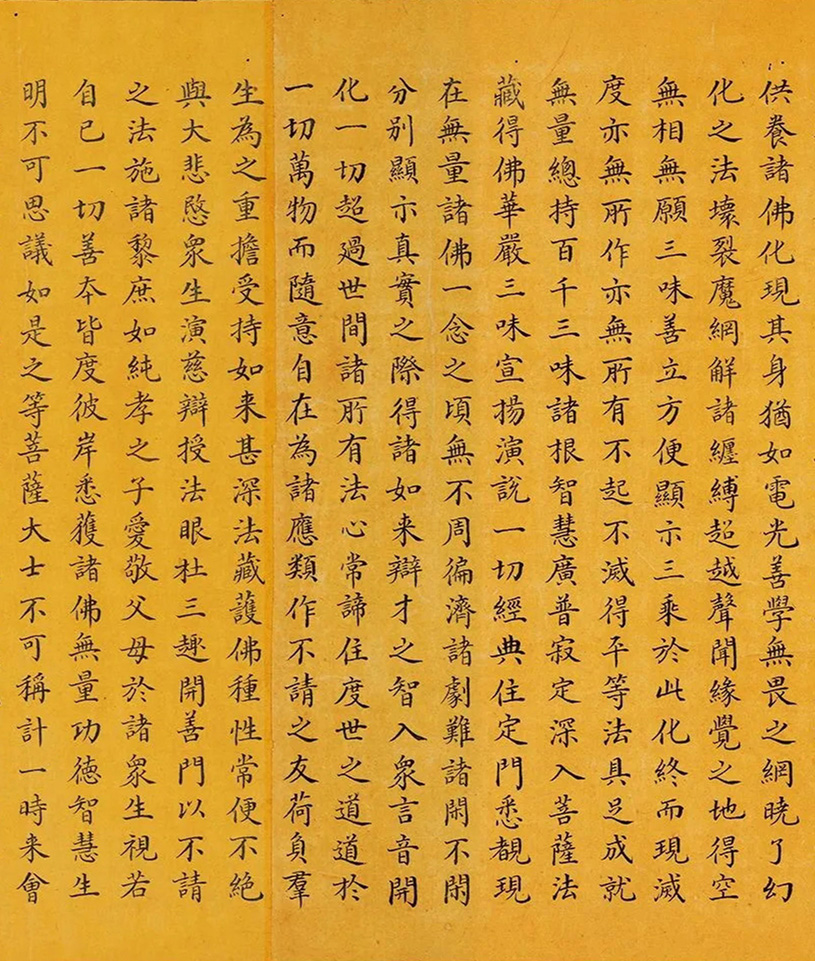 供養諸佛化現其身猶如電光善學無畏之網曉了幻
化之法壞裂魔網解諸纏縛超越聲聞緣覺之地得空
無相無願三昧善立方便顯示三乘於此化終而現滅
度亦無所作亦無所有不起不滅得平等法具足成就
無量總持百千三昧諸根智慧廣普寂定深入菩薩法
藏得佛華嚴三昧宣揚演說一切經典住定門悉覩現
在無量諸佛一念之頃無不周徧濟諸劇難諸閑不閑
分別顯示真實之際得諸如来辯才之智入眾言音開
化一切超過世間諸所有法心常諦住度世之道道於
一切萬物而隨意自在為諸應類作不請之友荷負羣
生為之重擔受持如来甚深法藏護佛種性常便不絕
與大悲愍眾生演慈辯授法眼杜三趣開善門以不請
之法施諸黎庶如純孝之子愛敬父母於諸眾生視若
自己一切善本皆度彼岸悉獲諸佛無量功德智慧生
明不可思議如是之等菩薩大士不可稱計一時来會